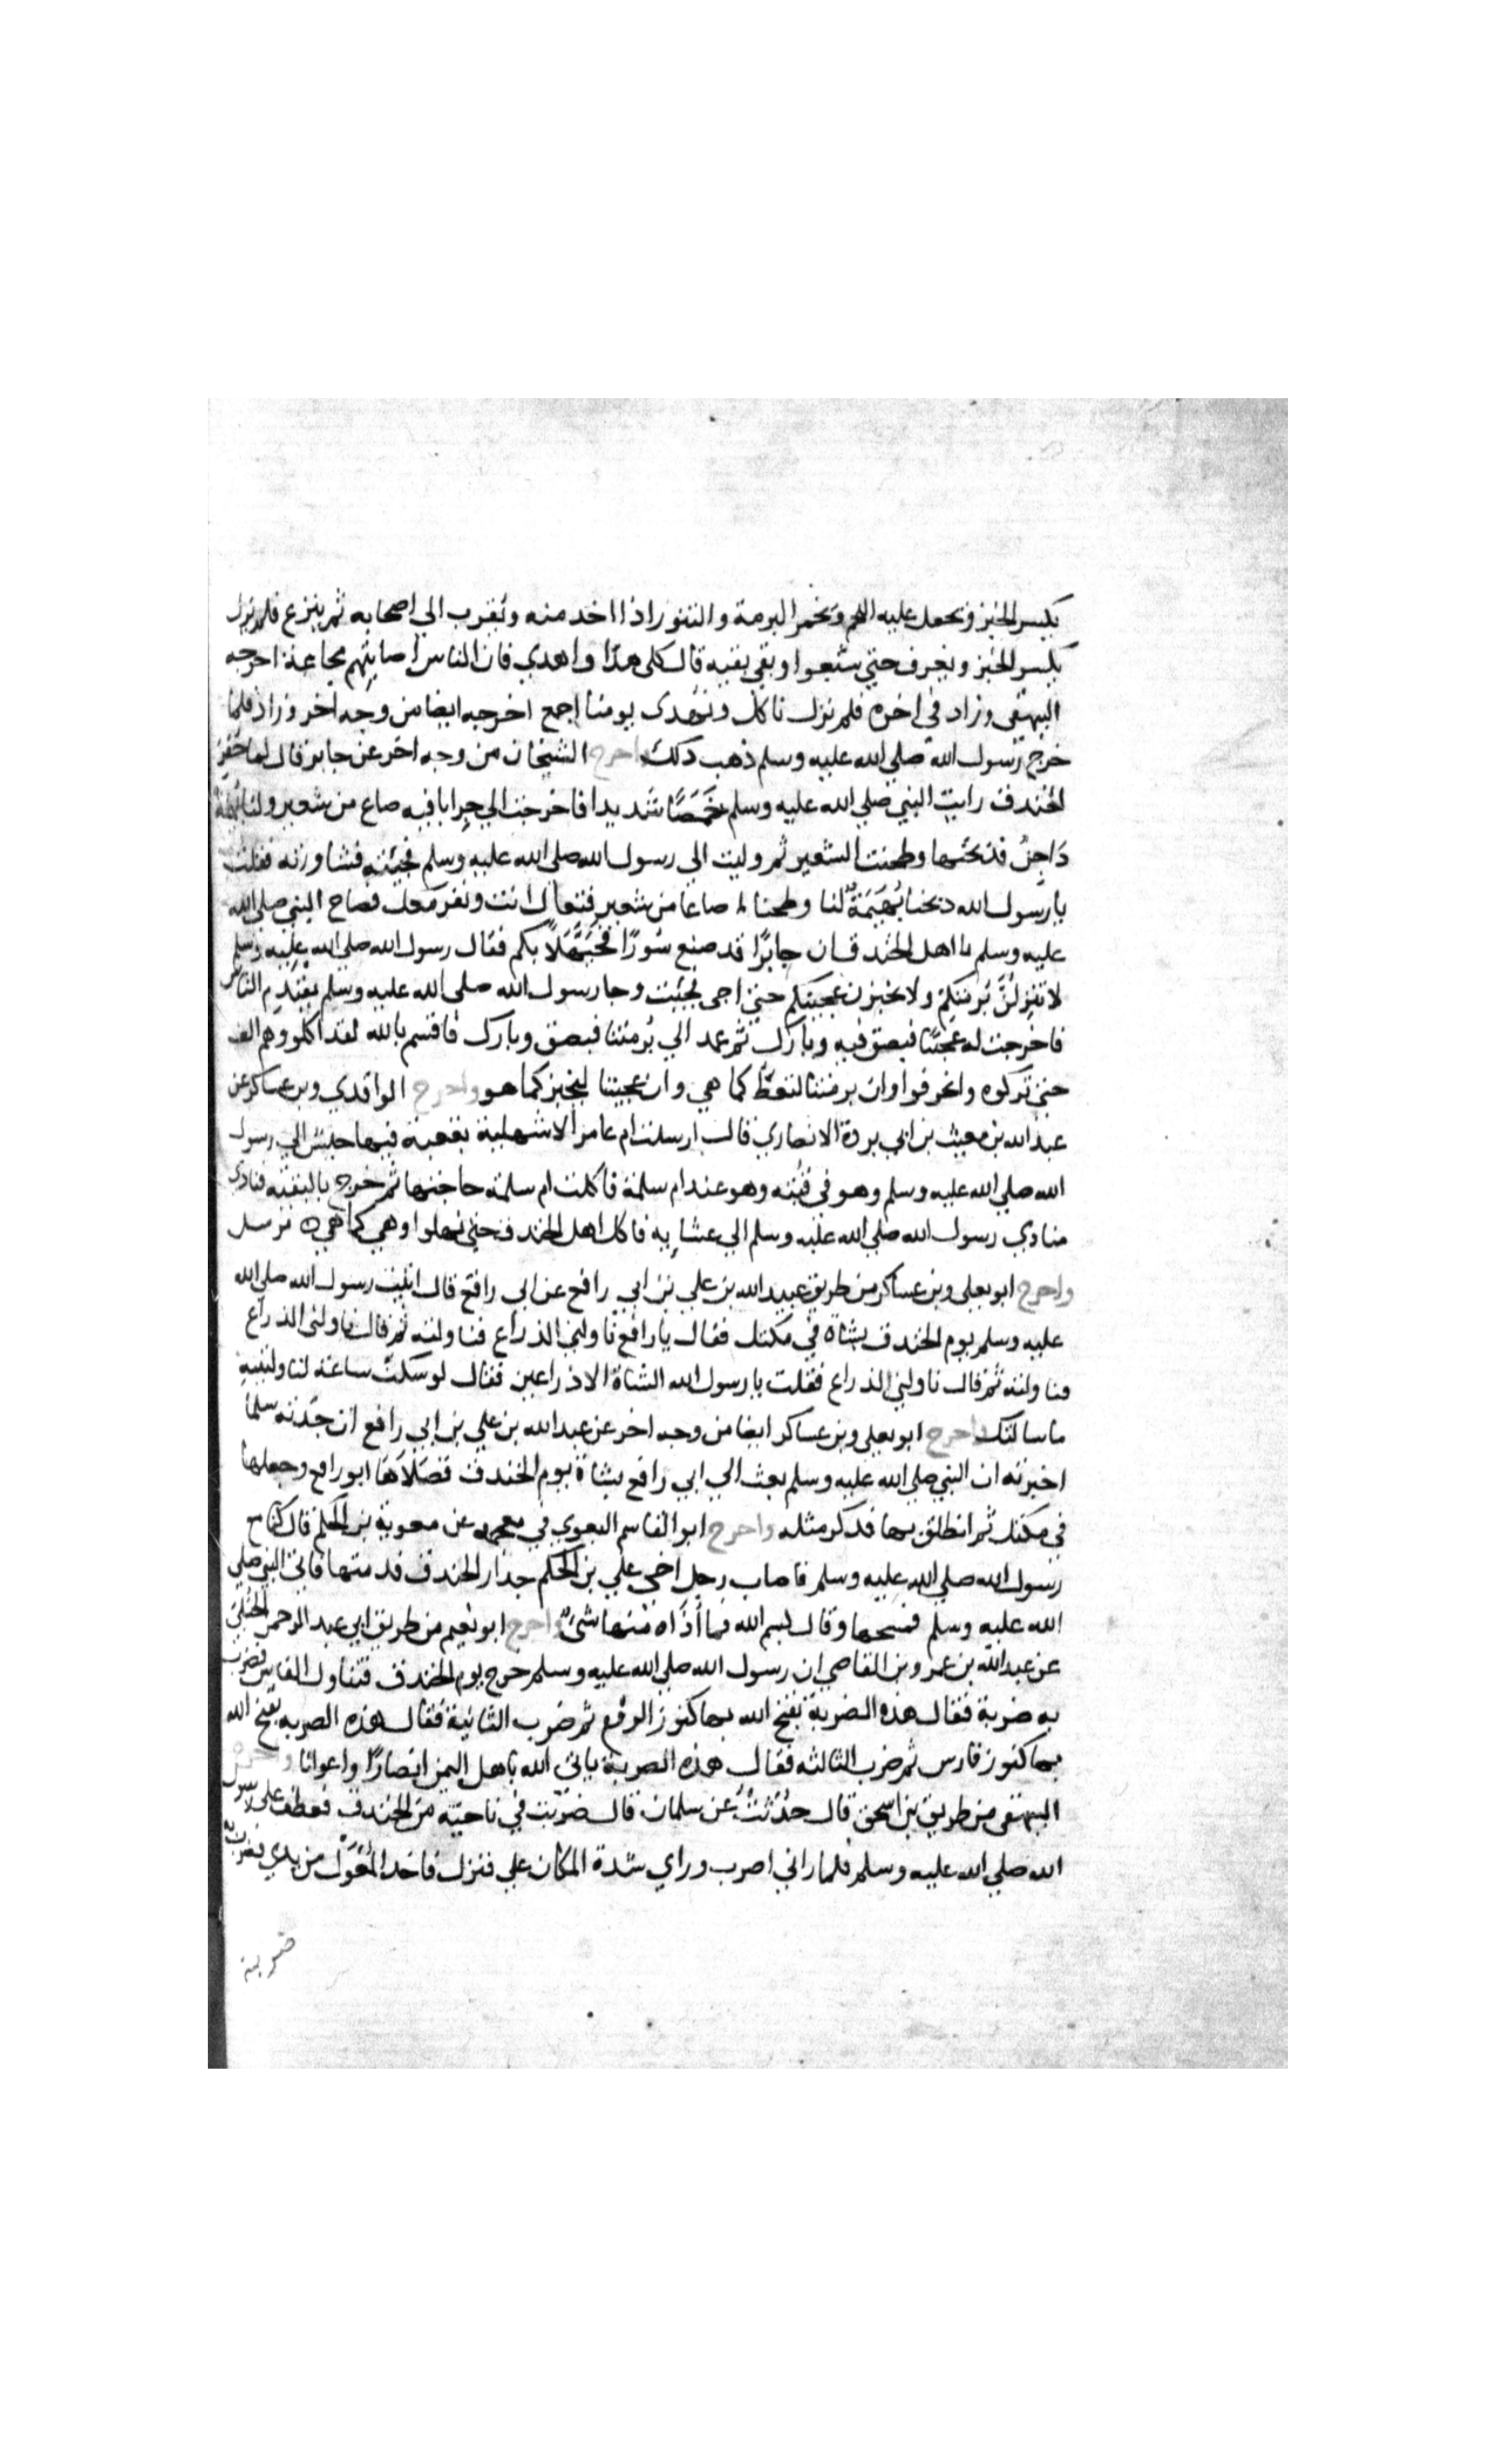 يكسر الخبز ونجعل عليه اللحم ونخمر البرمة والتنور اذا اخد منه ونقرب الي اصحابه ثم ينزع فلم يزل
يكسر الخبز ويغرف حتي شبعوا وبقي بقيه قال كلي هذا واهدي فان الناس اصابتهم مجاعة اخرجه
البيهقي وزاد في اخره فلم نزل ناكل ونهدى يومنا اجمع اخرجه ايضا من وجه اخر وزاد فلما
خرج رسول الله صلي الله عليه وسلم ذهب دلك واخرج الشيخان من وجه اخر عن جابر قال لما حفر
الخندق رايت النبي صلي الله عليه وسلم خَمَصًا شديدا فاخرجت الي جرابا فيه صاع من شعير ولنا بهيمة
دَاجِنٌ فذبحتها وطحنت الشعير ثم وليت الي رسول الله صلي الله عليه وسلم فجئته فشاورته فقلت
يارسول الله دبحنا بُهَيْمَةً لنا وطحنا صاعا من شعير فتعال انت ونفر معك فصاح النبي صلي الله
عليه وسلم يا اهل الخندق ان جابرًا قد صنع سُورًا فحَيَّهَلًا بكم فقال رسول الله صلي الله عليه وسلم
لا تنزلنَّ بُرمتكم ولا تخبزن عجينكم حتي اجي فجئت وجا رسول الله صلي الله عليه وسلم يقدم الناس
فاخرجت له عجينا فبصق فيه وبارك ثم عمد الي بُرمتنا فبصق وبارك فاقسم بالله لقد اكلوا وهم الف
حتي تركوه وانحرفوا وان برمتنا لتغطّ كما هي وان عجيننا ليخبز كما هو واخرج الواقدي وبن عساكر عن
عبد الله بن مغيث بن ابي بردة الانصاري قال ارسلت ام عامر الاشهلية بقعبة فيها حيس الي رسول
الله صلي الله عليه وسلم وهو في قبته وهو عند ام سلمة فاكلت ام سلمة حاجتها ثم خرج بالبقيه فنادى
منادي رسول الله صلي الله عليه وسلم الي عشايه فاكل اهل الخندق حتي نهلوا وهي كما هي مرسل
واخرج ابو يعلي وبن عساكر من طريق عبيد الله بن علي بن ابي رافع عن ابي رافع قال اتيت رسول الله صلي الله
عليه وسلم يوم الخندق بشاة في مكتل فقال يارافع ناولني الذراع فناولته ثم قال ناولني الذراع
فناولته ثم قال ناولني الذراع فقلت يارسول الله الشاة الا ذراعين فقال لو سكتّ ساعة لناولتنيه
ماسالتك واخرج ابو يعلي وبن عساكر ايضا من وجه اخر عن عبد الله بن علي بن ابي رافع ان جدته سلما
اخبرته ان النبي صلي الله عليه وسلم بعث الي ابي رافع بشاة يوم الخندق فصَلَاهَا ابو رافع وجعلها
في مكتل ثم انطلق بها فدكر مثله واخرج ابو القاسم البغوي في معجمه عن معوية بن الحكم قال كنا مع
رسول الله صلي الله عليه وسلم فاصاب رجل اخي علي بن الحكم جدار الخندق فدمتها فاتي النبي صلي
الله عليه وسلم فمسحها وقال بسم الله فما أذاه منها شئ واخرج ابو نعيم من طريق ابي عبد الرحمن الحبلي
عن عبد الله بن عمرو بن القاصي ان رسول الله صلي الله عليه وسلم خرج يوم الخندق فتناول الفاس فضرب
به ضربة فقال هذه الضربة يفتح الله بها كنوز الروم ثم ضرب الثانية فقال هذه الضربه يفتح الله
بها كنوز فارس ثم ضرب الثالثه فقال هذه الضربة ياتي الله باهل اليمن انصارًا واعوانا واخرج
البيهقي من طريق بن اسحق قال حُدّثتُ عن سلمان قال ضربت في ناحية من الخندق فعطف علي رسول
الله صلي الله عليه وسلم فلما راني اضرب وراي شدة المكان علي فنزل فاخد المعْوَل من يدي فضرب به
ضربة